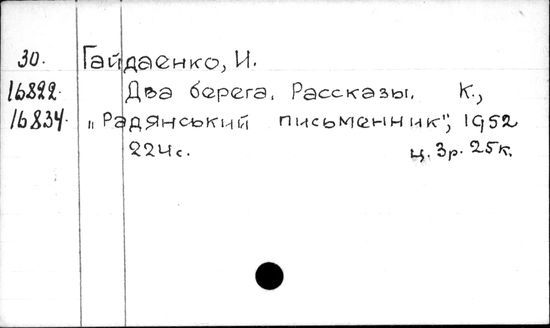 30. Гайдаенко, И.
16822. Два берега. Рассказы. К.,
16834. „Радянський письменник", 1952
224с. ц. 3р. 25к.